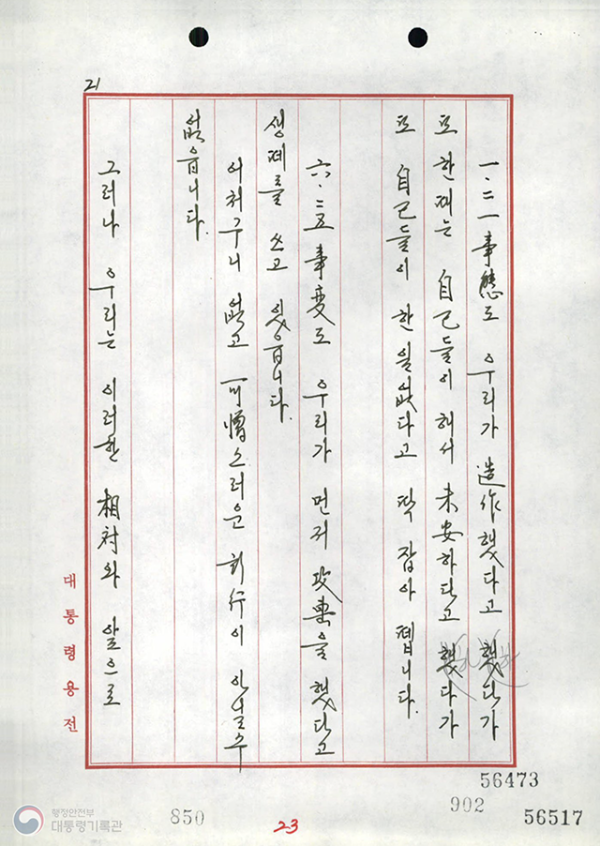 21
一.二一事態도 우리가 造作했다고 했다가
또 한때는 自己들이 해서 未安하다고 했다가
또 自己들이 한일없다고 딱 잡아 뗍니다.
六.二五事変도 우리가 먼저 攻撃을 했다고
생떼를 쓰고 있읍니다.
어처구니 없고 可憎스러운 있을수
없읍니다.
그러나 우리는 이러한 相対와 앞으로
대통령용전
56473
902
56517
850
23
행정안전부
대통령기록관